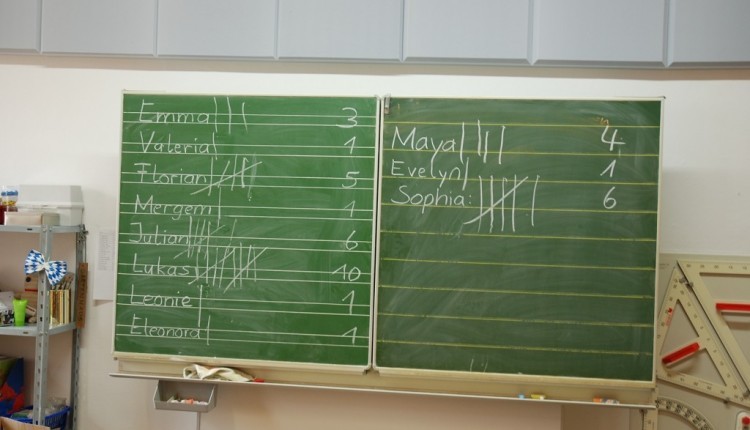 Emma ||| 3
Valeria | 1
Florian 5
Mergem | 1
Julian 6
Lukas 10
Leonie | 1
Eleonora | 1
Maya |||| 4
Evelyn | 1
Sophia: 6